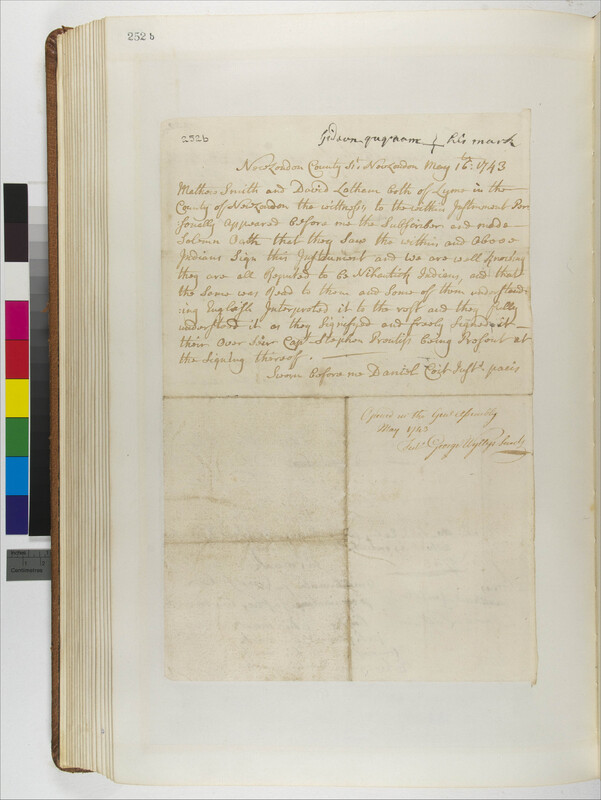 252 b
252b
Gideon quqraom his mark
New London County Ss New London May 16th: 1743
Mathew Smith and David Latham both of Lyme in the
County of New London the wittnesses to the within Instrument Per
sonally appeared before me the Subscriber and made
Solemn Oath that they Saw the within and above
Indians Sign this Instrument and we are well knowing
they are all Reputed to be Nihantick Indians, and that
the Same was Read to them and Some of them understand
ing English Interpreted it to the rest and they fully
understood it as they Signifyed and freely Signed it
their Over Seer Capt Stephen Prentiss being Present at
the Signing thereof.
Sworn before me Daniel Coit Just. pacis
in the Genl Assembly
May 1743
Test George Wyllys Secrety
Inches
1
2
Centimetres